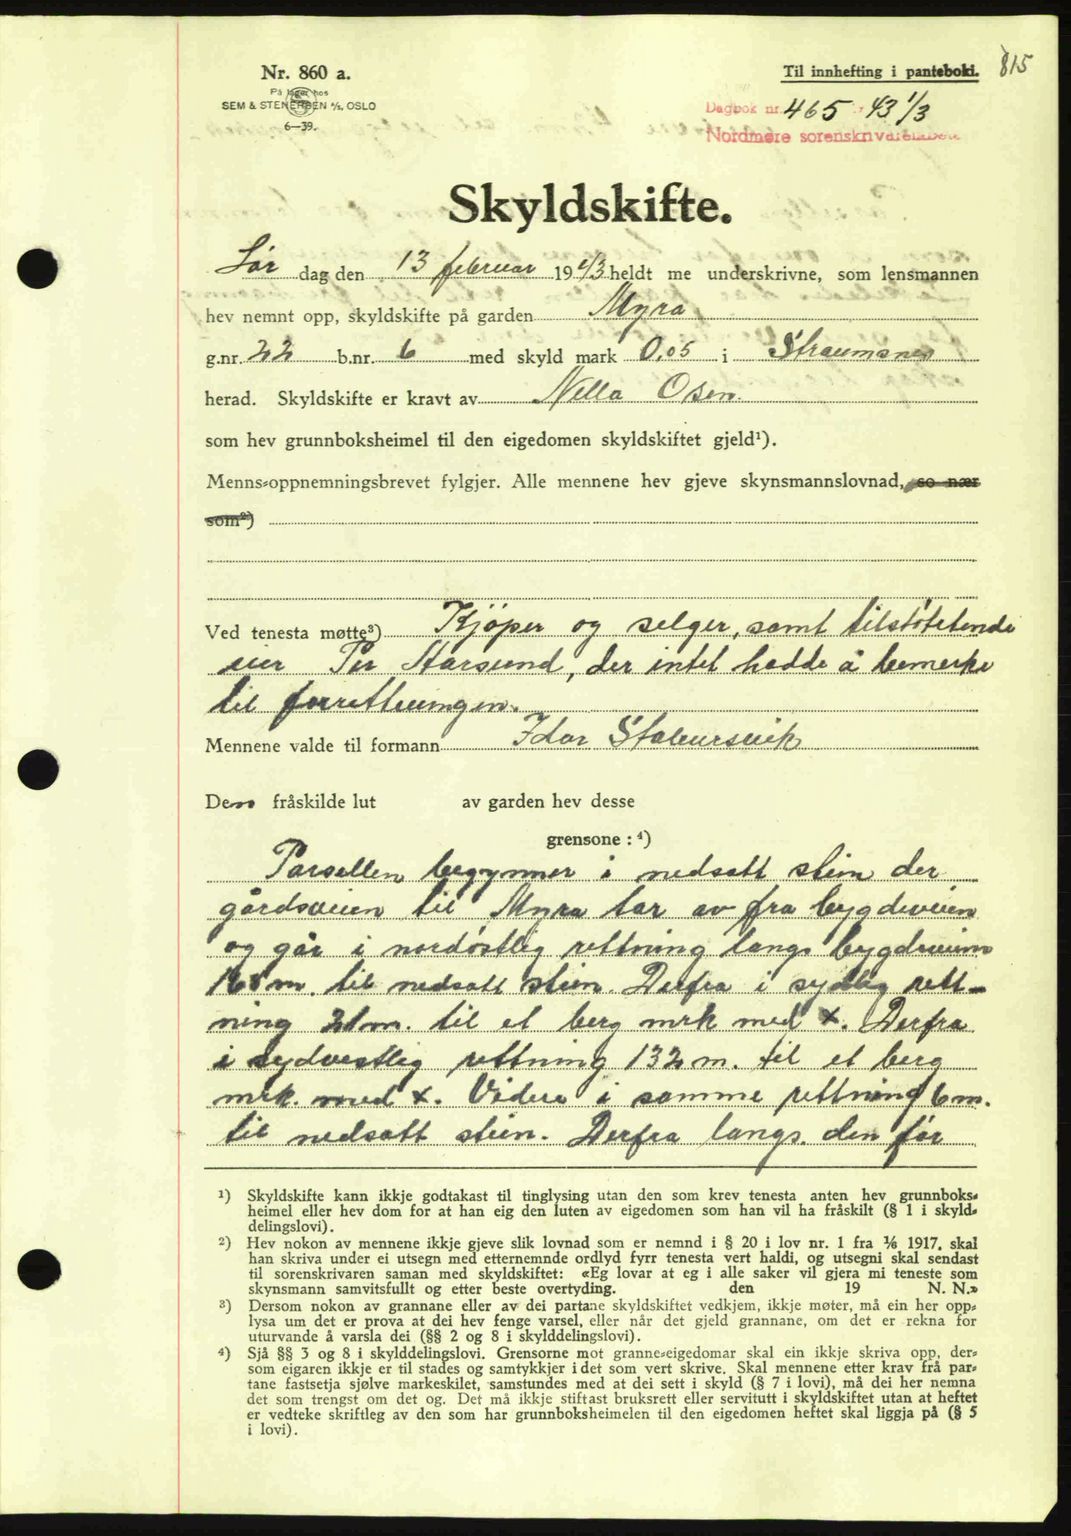 815
Nr. 860 a.
Til innhefting i pantebok.
På lager hos
SEM & STENERSEN A/S, OSLO
6—39.
Dagbok nr. 465 - 43 1/3
Nordmøre sorenskriverembete
Skyldskifte.
Lør dag den 13 februar 1943 heldt me underskrivne, som lensmannen
hev nemnt opp, skyldskifte på garden Myra
g.nr. 22 b.nr. 6 med skyld mark 0,05 i Straumsnes
herad. Skyldskifte er kravt av Nella Osen.
som hev grunnboksheimel til den eigedomen skyldskiftet gjeld¹).
Menns-oppnemningsbrevet fylgjer. Alle mennene hev gjeve skynsmannslovnad, so nær
som²)
Ved tenesta møtte³) Kjøper og selger, samt tilstøtetende
eier Per Starsund, der intet hadde å bemerke
til forrettningen.
Mennene valde til formann Idar Stokkersvik
Den fråskilde lut av garden hev desse
grensone : ⁴)
Parsellen begynner i nedsatt stein der
gårdsveien til Myra tar av fra bygdeveien
og går i nordøstlig rettning langs bygdeveien
168 m. til nedsatt stein. Derfra i sydlig rett-
ning 21 m. til et berg mrk med x. Derfra
i sydvestlig rettning 132 m. til et berg
mrk. med x. Videre i samme rettning 6 m.
til nedsatt stein. Derfra langs den før
¹) Skyldskifte kann ikkje godtakast til tinglysing utan den som krev tenesta anten hev grunnboks-
heimel eller hev dom for at han eig den luten av eigedomen som han vil ha fråskilt (§ 1 i skyld-
delingslovi).
²) Hev nokon av mennene ikkje gjeve slik lovnad som er nemnd i § 20 i lov nr. 1 fra 1/6 1917, skal
han skriva under ei utsegn med etternemnde ordlyd fyrr tenesta vert haldi, og utsegni skal sendast
til sorenskrivaren saman med skyldskiftet: «Eg lovar at eg i alle saker vil gjera mi teneste som
skynsmann samvitsfullt og etter beste overtyding. den 19 N. N.»
³) Dersom nokon av grannane eller av dei partane skyldskiftet vedkjem, ikkje møter, må ein her opp-
lysa um det er prova at dei hev fenge varsel, eller når det gjeld grannane, om det er rekna for
uturvande å varsla dei (§§ 2 og 8 i skylddelingslovi).
⁴) Sjå §§ 3 og 8 i skylddelingslovi. Grensorne mot granne-eigedomar skal ein ikkje skriva opp, der-
som eigaren ikkje er til stades og samtykkjer i det som vert skrive. Skal mennene etter krav frå par-
tane fastsetja sjølve markeskilet, samstundes med at dei sett i skyld (§ 7 i lovi), må dei her nemna
det som trengst om det og. Det må ikkje stiftast bruksrett eller servitutt i skyldskiftet utan at heftet
er vedteke skriftleg av den som har grunnboksheimelen til den eigedomen heftet skal liggja på (§ 5
i lovi).